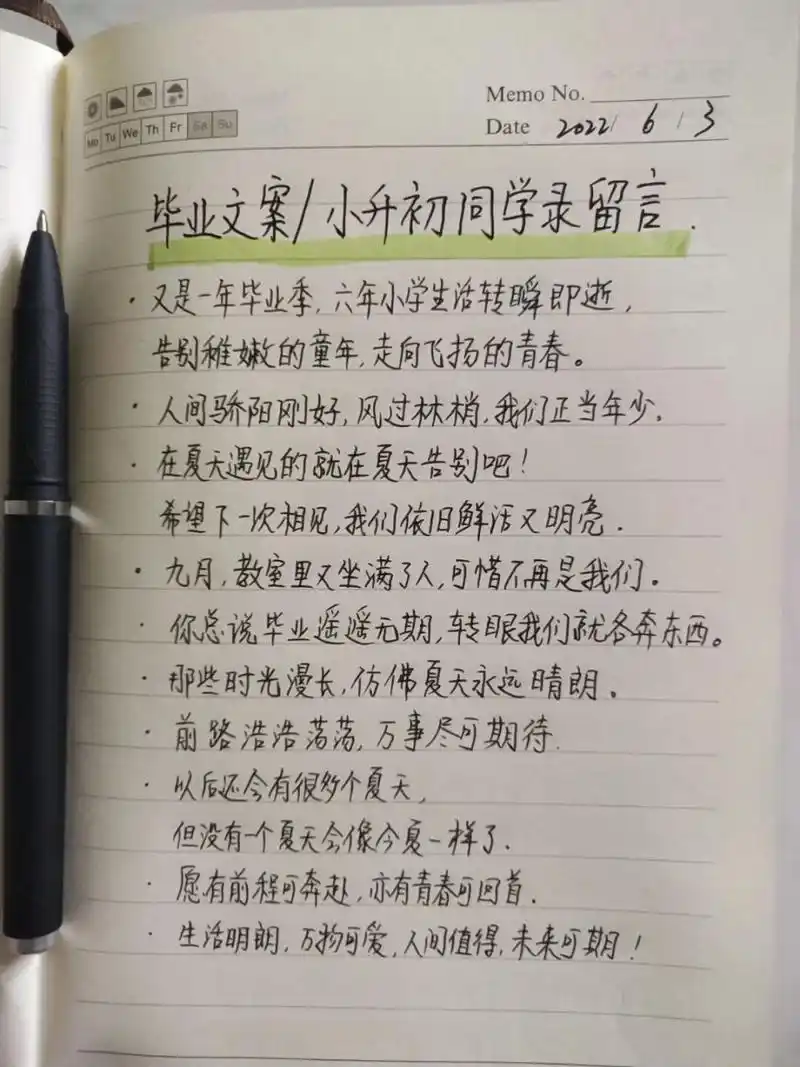 Memo No.
Mo Tu We Th Fr Sa Su
Date 2022/ 6 / 3
毕业文案/小升初同学录留言.
·又是一年毕业季,六年小学生活转瞬即逝,
告别稚嫩的童年,走向飞扬的青春。
·人间骄阳刚好,风过林梢,我们正当年少.
·在夏天遇见的就在夏天告别吧!
希望下一次相见,我们依旧鲜活又明亮.
·九月,教室里又坐满了人,可惜不再是我们。
·你总说毕业遥遥无期,转眼我们就各奔东西。
·那些时光漫长,仿佛夏天永远晴朗。
·前路浩浩荡荡,万事尽可期待.
·以后还会有很多个夏天,
但没有一个夏天会像今夏一样了.
·愿有前程可奔赴,亦有青春可回首.
·生活明朗,万物可爱,人间值得,未来可期!